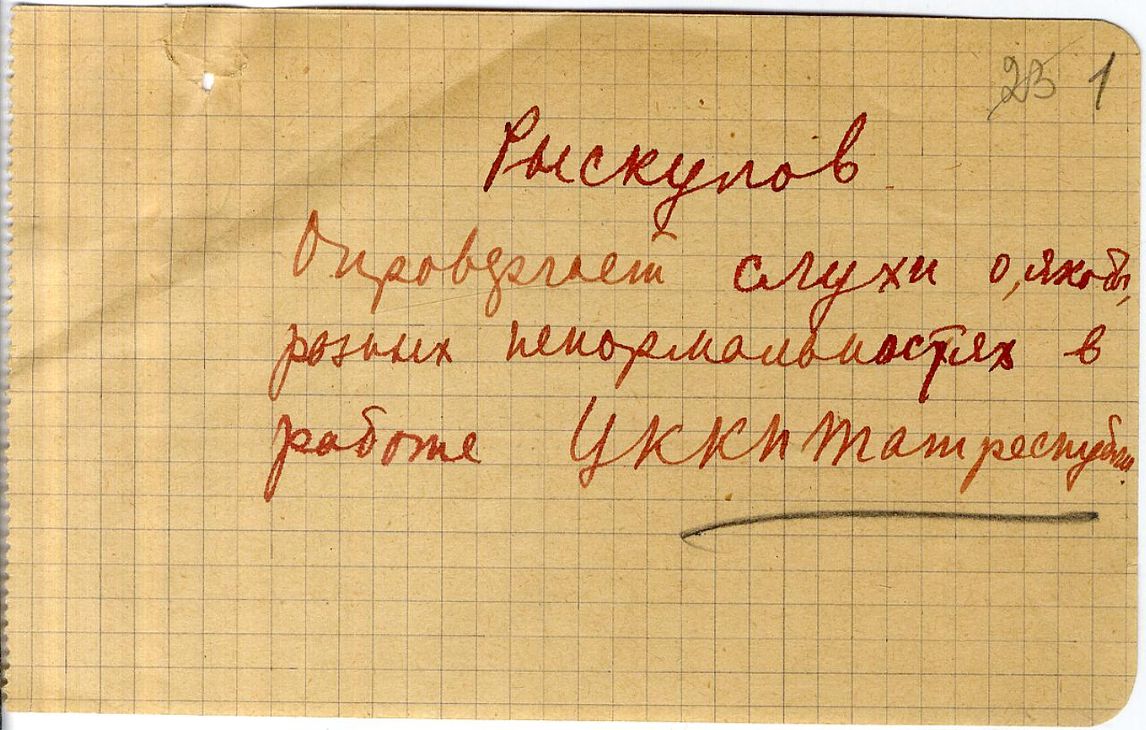 23 1
Рыскулов
Опровергает слухи о, якобы,
разных ненормальностях в
работе ЦККП Татреспубли.